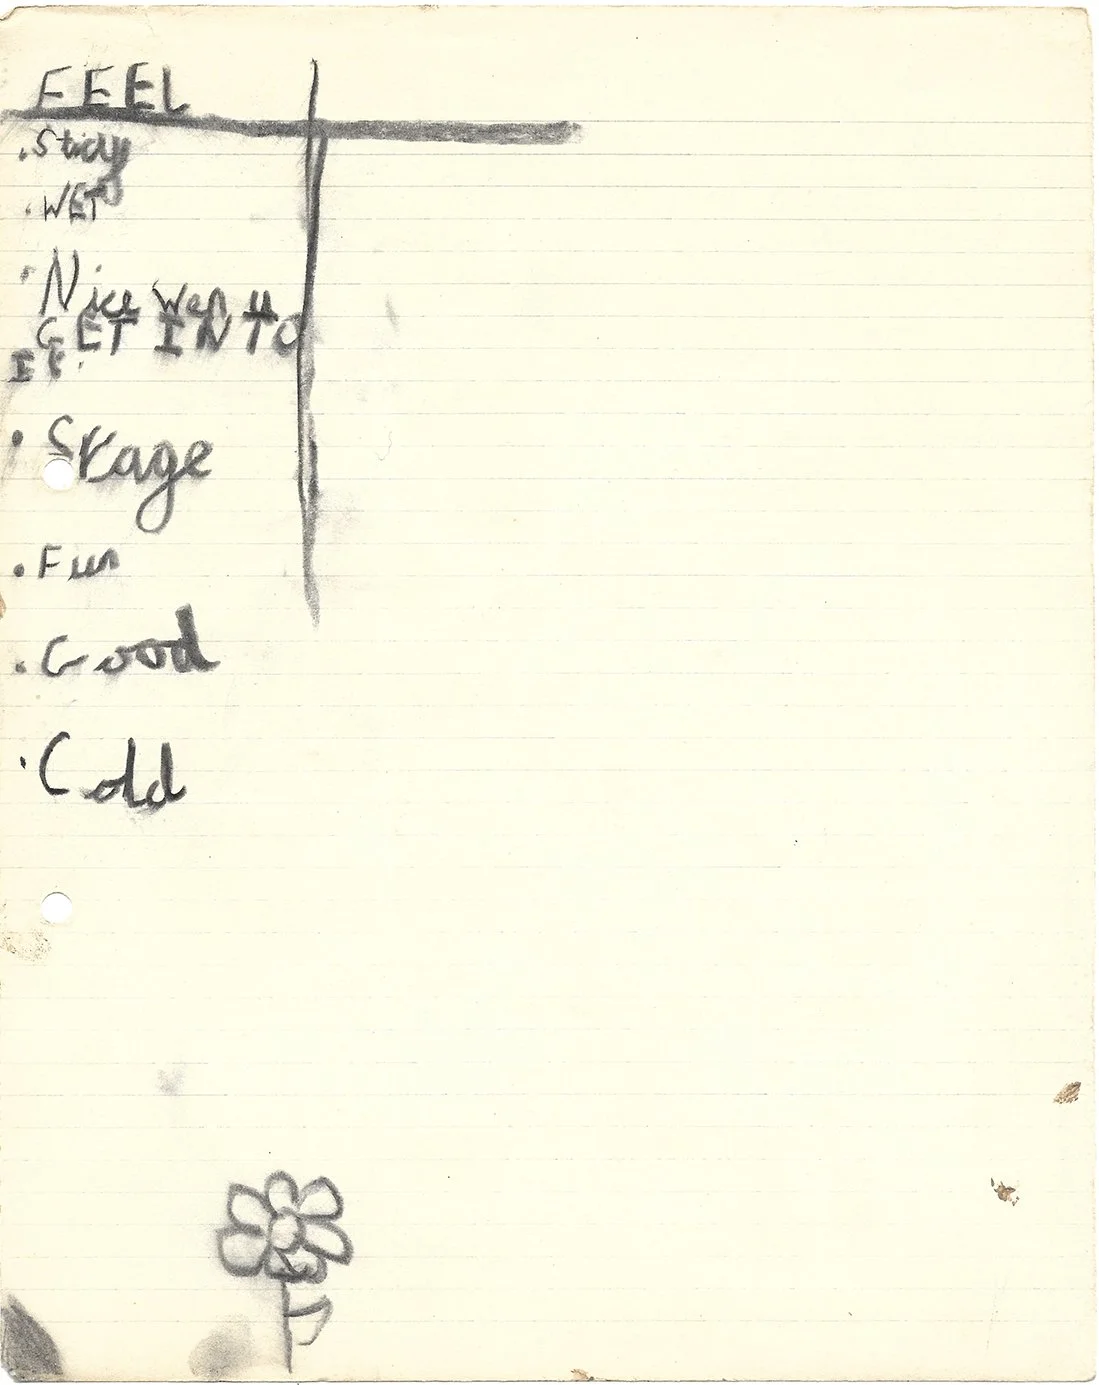 FEEL
. Sticky
. WET
. Nice wen u
GET INTO
IT.
. Skage
. Fun
. Good
. Cold